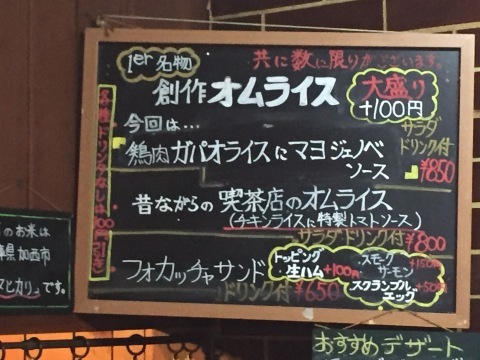 1er名物
共に数に限りがございます。
創作オムライス
大盛り
+100円
今回は…
サラダ
ドリンク付
鶏肉ガパオライスにマヨジェノベ
ソース
¥850
昔ながらの喫茶店のオムライス
(チキンライスに特製トマトソース)
サラダドリンク付
¥800
フォカッチャサンド
ドリンク付
¥650
トッピング
生ハム
+100円
スモーク
サーモン
+150円
スクランブル
エッグ
+50円
各種ドリンクなしは100円引き
のお米は
県加西市
マヒカリ」です。
おすすめデザート